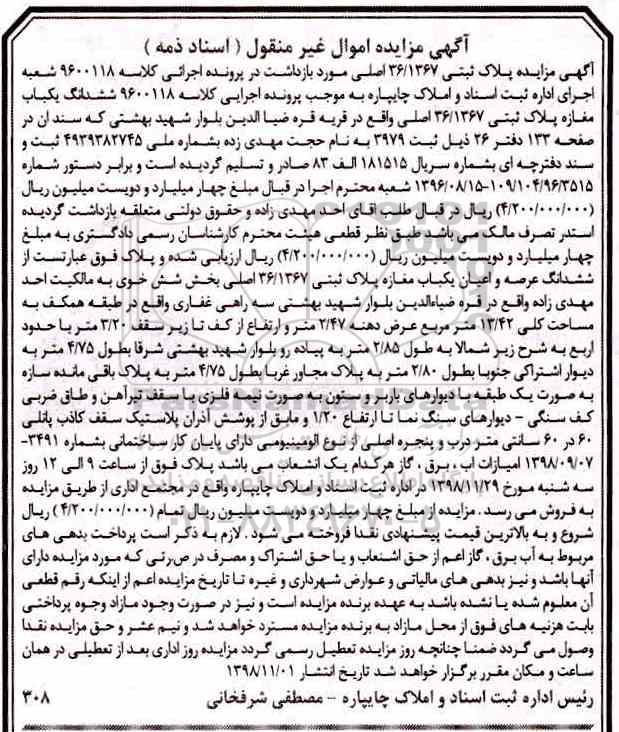 آگهی مزایده اموال غیر منقول ( اسناد ذمه )
آگهی مزایده پلاک ثبتی ۳۶/۱۳۶۷ اصلی مورد بازداشت در پرونده اجرائی کلاسه ۹۶۰۰۱۱۸ شعبه
اجرای اداره ثبت اسناد و املاک چایپاره به موجب پرونده اجرایی کلاسه ۹۶۰۰۱۱۸ ششدانگ یکباب
مغازه پلاک ثبتی ۳۶/۱۳۶۷ اصلی واقع در قریه قره ضیا الدین بلوار شهید بهشتی که سند ان در
صفحه ۱۳۳ دفتر ۲۶ ذیل ثبت ۳۹۷۹ به نام حجت مهدی زده بشماره ملی ۴۹۳۹۳۸۲۷۴۵ ثبت و
سند دفترچه ای بشماره سریال ۱۸۱۵۱۵ الف ۸۳ صادر و تسلیم گردیده است و برابر دستور شماره
۱۰۹/۱۰۴/۹۶/۳۵۱۵-۱۳۹۶/۰۸/۱۵ شعبه محترم اجرا در قبال مبلغ چهار میلیارد و دویست میلیون ریال
(۴/۲۰۰/۰۰۰/۰۰۰) ریال در قبال طلب اقای احد مهدی زاده و حقوق دولتی متعلقه بازداشت گردیده
استدر تصرف مالک می باشد طبق نظر قطعی هیئت محترم کارشناسان رسمی دادگستری به مبلغ
چهار میلیارد و دویست میلیون ریال (۴/۲۰۰/۰۰۰/۰۰۰) ریال ارزیابی شده و پلاک فوق عبارتست از
ششدانگ عرصه و اعیان یکباب مغازه پلاک ثبتی ۳۶/۱۳۶۷ اصلی بخش شش خوی به مالکیت احد
مهدی زاده واقع در قره ضیاءالدین بلوار شهید بهشتی سه راهی غفاری واقع در طبقه همکف به
مساحت کلی ۱۳/۴۲ متر مربع عرض دهنه ۲/۴۷ متر و ارتفاع از کف تا زیر سقف ۳/۲۰ متر با حدود
اربع به شرح زیر شمالا به طول ۲/۸۵ متر به پیاده رو بلوار شهید بهشتی شرقا بطول ۴/۷۵ متر به
دیوار اشتراکی جنوبا بطول ۲/۸۰ متر به پلاک مجاور غربا بطول ۴/۷۵ متر به پلاک باقی مانده سازه
به صورت یک طبقه با دیوارهای باربر و ستون به صورت نیمه فلزی با سقف تیرآهن و طاق ضربی
کف سنگی - دیوارهای سنگ نما تا ارتفاع ۱/۲۰ و مابق از پوشش آذران پلاستیک سقف کاذب پانلی
۶۰ در ۶۰ سانتی متر درب و پنجره اصلی از نوع الومینیومی دارای پایان کار ساختمانی بشماره ۳۴۹۱-
۱۳۹۸/۰۹/۰۷ امیازات آب ، برق ، گاز هرکدام یک انشعاب می باشد پلاک فوق از ساعت ۹ الی ۱۲ روز
سه شنبه مورخ ۱۳۹۸/۱۱/۲۹ در اداره ثبت اسناد و املاک چایپاره واقع در مجتمع اداری از طریق مزایده
به فروش می رسد . مزایده از مبلغ چهار میلیارد و دویست میلیون ریال تمام (۴/۲۰۰/۰۰۰/۰۰۰) ریال
شروع و به بالاترین قیمت پیشنهادی نقدا فروخته می شود . لازم به ذکر است پرداخت بدهی های
مربوط به آب برق ، گاز اعم از حق اشنعاب و یا حق اشتراک و مصرف در صرتی که مورد مزایده دارای
آنها باشد و نیز بدهی های مالیاتی و عوارض شهرداری و غیره تا تاریخ مزایده اعم از اینکه رقم قطعی
آن معلوم شده یا نشده باشد به عهده برنده مزایده است و نیز در صورت وجود مازاد وجوه پرداختی
بابت هزنیه های فوق از محل مازاد به برنده مزایده مسترد خواهد شد و نیم عشر و حق مزایده نقدا
وصول می گردد ضمنا چنانچه روز مزایده تعطیل رسمی گردد مزایده روز اداری بعد از تعطیلی در همان
ساعت و مکان مقرر برگزار خواهد شد تاریخ انتشار ۱۳۹۸/۱۱/۰۱
رئیس اداره ثبت اسناد و املاک چایپاره - مصطفی شرفخانی ۳۰۸